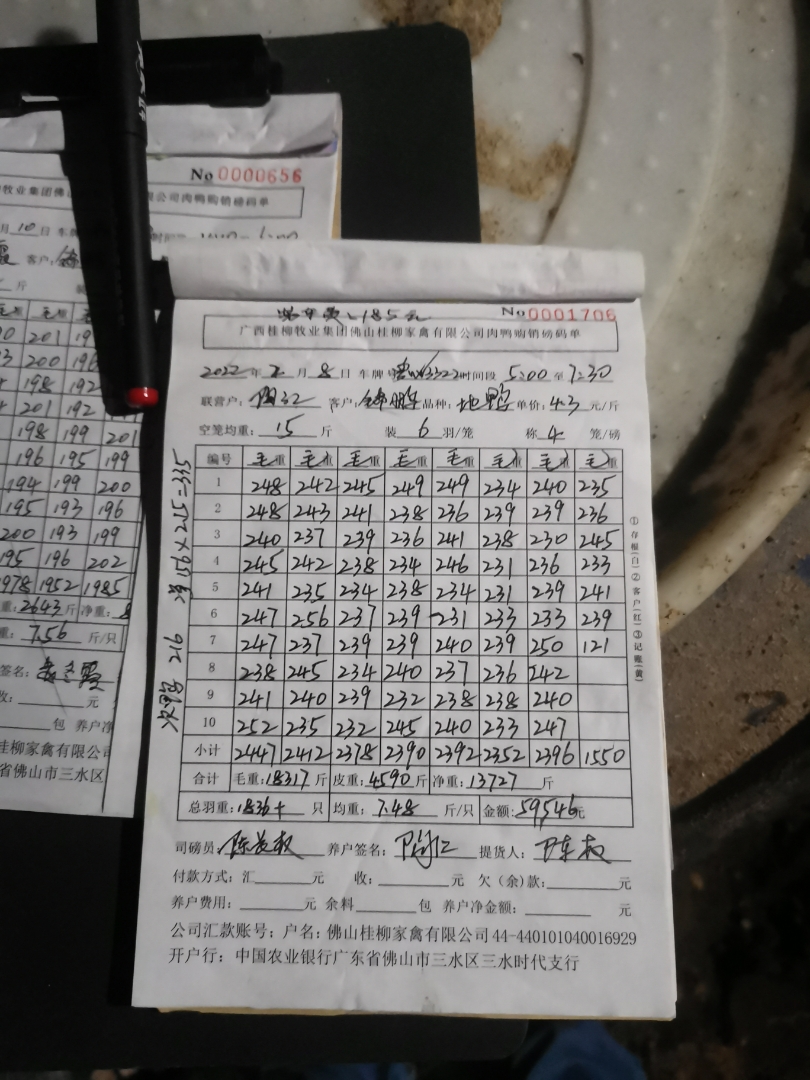 No 0000656
牧业集团佛
限公司肉鸭购销磅码单
月10日 车牌
客户:
斤
0 201 19
3 200 196
198 192
201 192
198 199 201
196 195 199
194 199 200
195 193 196
200 193 199
195 196 202
1978 1952 1985
重:2643斤 净重:8
重:7.56 斤/只
签名:
收: 元
包 养户净
桂柳家禽有限公司
省佛山市三水区
185元 No 0001706
广西桂柳牧业集团佛山桂柳家禽有限公司肉鸭购销磅码单
2022年2月8日 车牌号 时间段 5:00至7:30
联营户: 客户: 品种: 单价:4.3元/斤
空笼均重:15斤 装6羽/笼 称4笼/磅
编号 毛重 毛重 毛重 毛重 毛重 毛重 毛重 毛重
1 248 242 245 249 249 234 240 235
2 248 243 241 238 236 239 239 236
3 240 237 239 236 241 238 230 245
4 245 242 238 234 246 231 236 233
5 241 235 234 238 234 231 239 241
6 247 256 237 239 231 233 233 239
7 247 237 239 239 240 239 250 121
8 238 245 234 240 237 236 242
9 241 240 239 232 238 238 240
10 252 235 232 245 240 233 247
小计 2447 2412 2378 2390 2392 2352 2396 1550
合计 毛重:18317斤 皮重:4590斤 净重:13727斤
总羽重:1836 只 均重:7.48斤/只 金额:59546元
司磅员: 养户签名: 提货人:
付款方式:汇 元 收: 元 欠(余)款: 元
养户费用: 元 余料 包 养户净金额: 元
公司汇款账号:户名:佛山桂柳家禽有限公司44-440101040016929
开户行:中国农业银行广东省佛山市三水区三水时代支行
①存根(白)②客户(红)③记账(黄)
216
=335